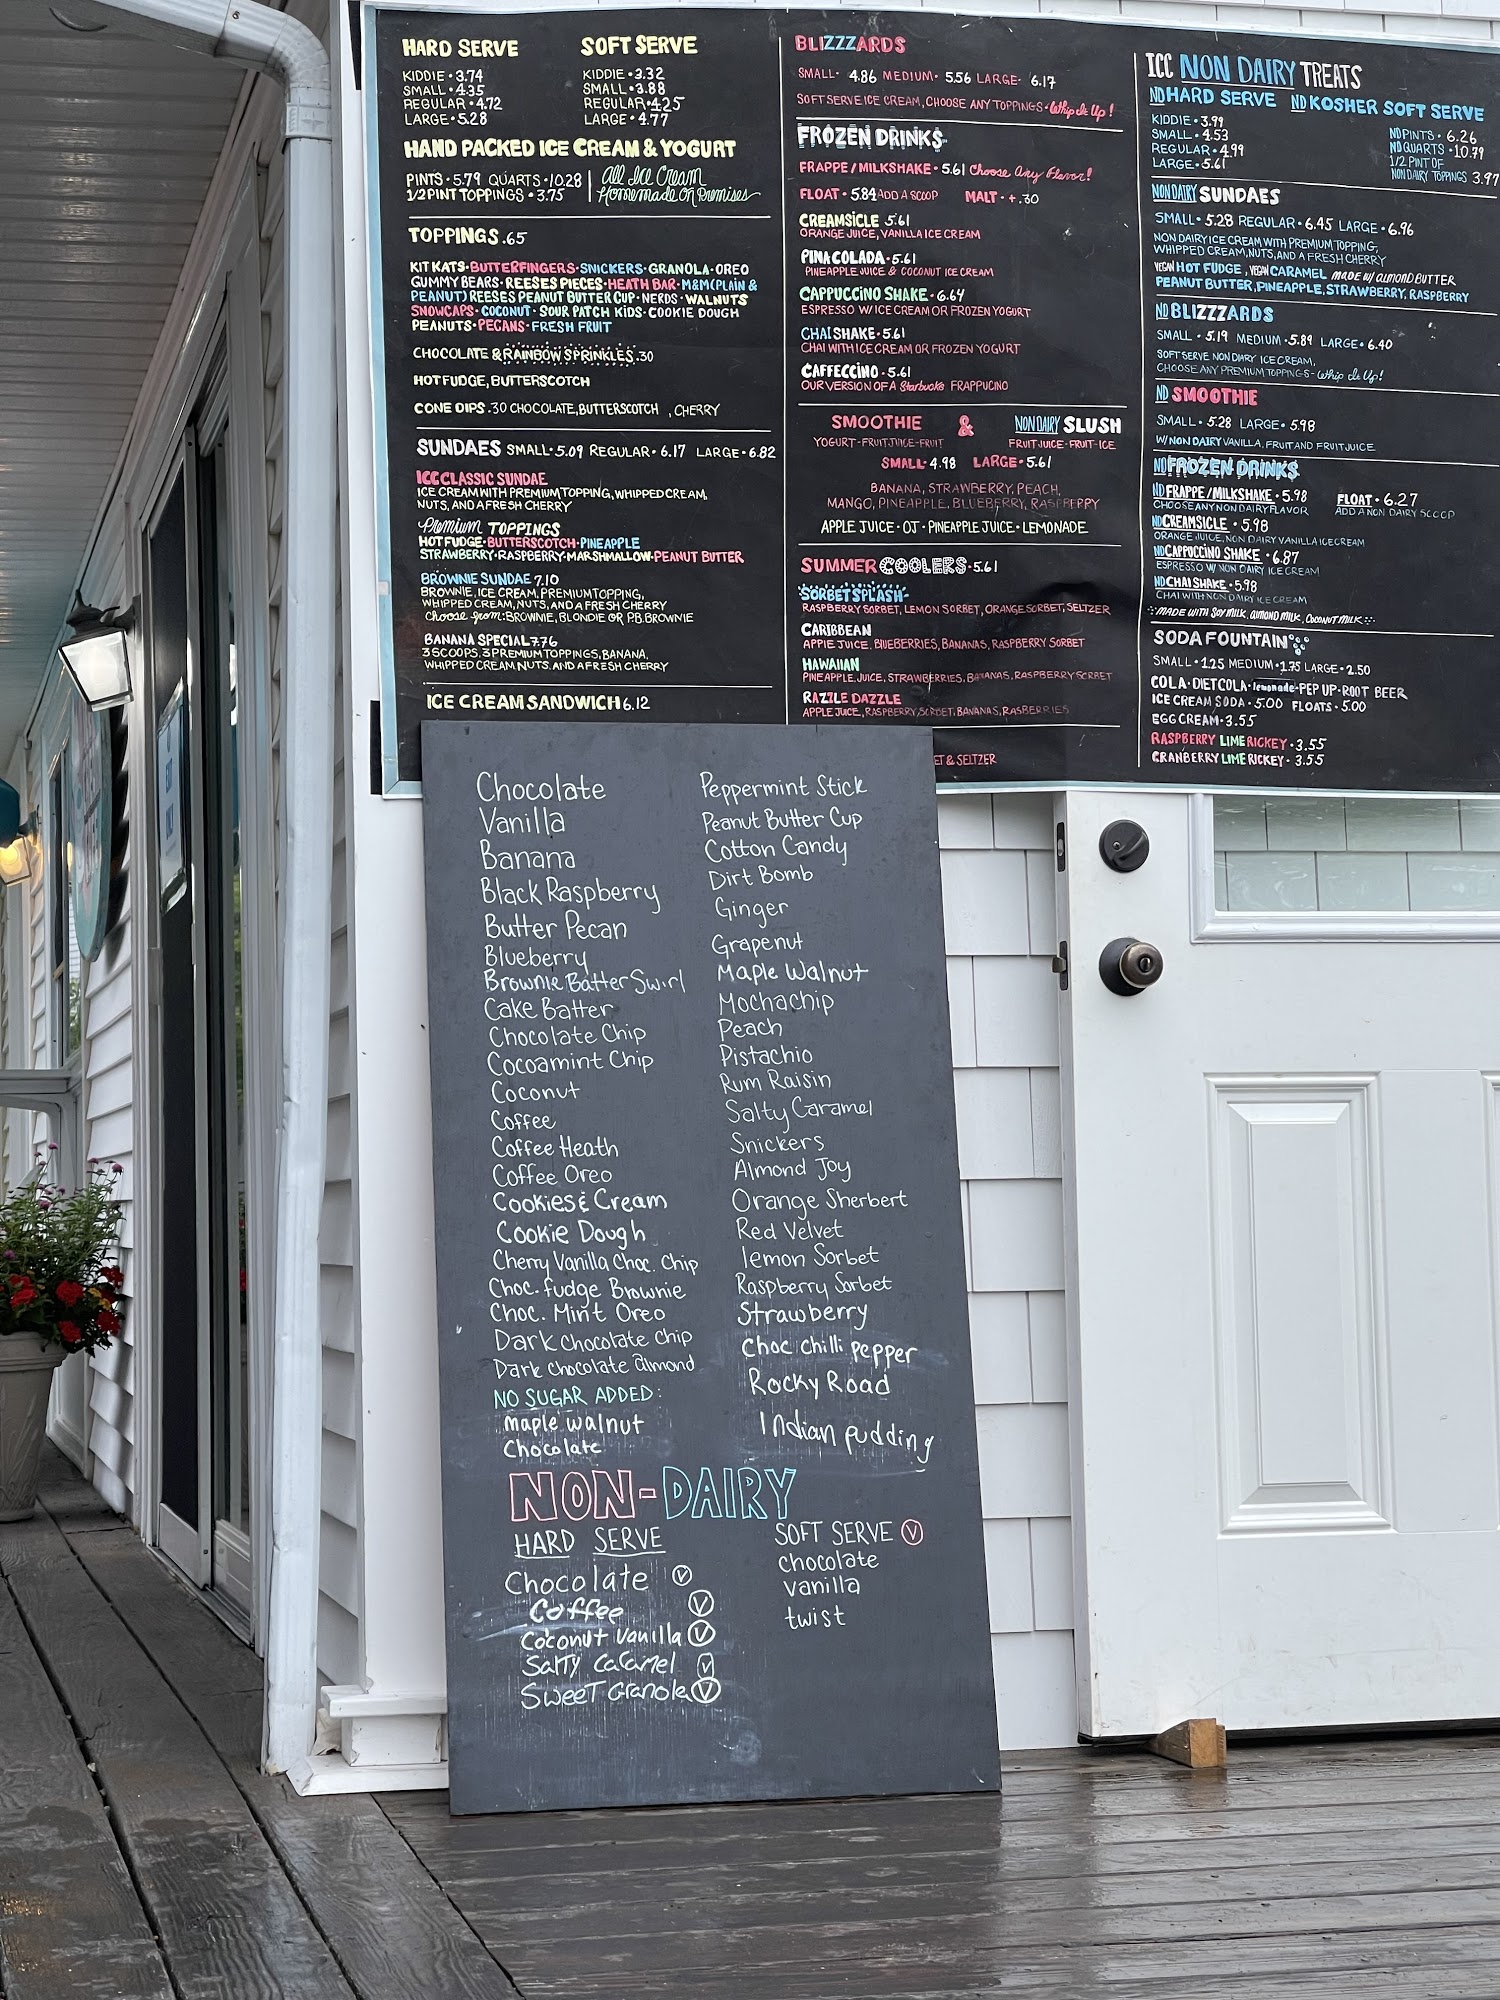 HARD SERVE
KIDDIE • 3.74
SMALL • 4.35
REGULAR • 4.72
LARGE • 5.28
SOFT SERVE
KIDDIE • 3.32
SMALL • 3.88
REGULAR • 4.25
LARGE • 4.77
HAND PACKED ICE CREAM & YOGURT
PINTS • 5.79 QUARTS • 10.28
1/2 PINT TOPPINGS • 3.75
All Ice Cream
Homemade On Premises
TOPPINGS .65
KIT KATS • BUTTERFINGERS • SNICKERS • GRANOLA • OREO
GUMMY BEARS • REESES PIECES • HEATH BAR • M&M (PLAIN &
PEANUT) REESES PEANUT BUTTER CUP • NERDS • WALNUTS
SNOWCAPS • COCONUT • SOUR PATCH KIDS • COOKIE DOUGH
PEANUTS • PECANS • FRESH FRUIT
CHOCOLATE & RAINBOW SPRINKLES .30
HOT FUDGE, BUTTERSCOTCH
CONE DIPS .30 CHOCOLATE, BUTTERSCOTCH , CHERRY
SUNDAES SMALL • 5.09 REGULAR • 6.17 LARGE • 6.82
ICC CLASSIC SUNDAE
ICE CREAM WITH PREMIUM TOPPING, WHIPPED CREAM,
NUTS, AND A FRESH CHERRY
Premium TOPPINGS
HOT FUDGE • BUTTERSCOTCH • PINEAPPLE
STRAWBERRY • RASPBERRY • MARSHMALLOW • PEANUT BUTTER
BROWNIE SUNDAE 7.10
BROWNIE, ICE CREAM, PREMIUM TOPPING,
WHIPPED CREAM, NUTS, AND A FRESH CHERRY
Choose from: BROWNIE, BLONDIE OR P.B. BROWNIE
BANANA SPECIAL 7.76
3 SCOOPS, 3 PREMIUM TOPPINGS, BANANA,
WHIPPED CREAM NUTS, AND A FRESH CHERRY
ICE CREAM SANDWICH 6.12
BLIZZZARDS
SMALL • 4.86 MEDIUM • 5.56 LARGE • 6.17
SOFT SERVE ICE CREAM, CHOOSE ANY TOPPINGS • Whip It Up!
FROZEN DRINKS
FRAPPE / MILKSHAKE • 5.61 Choose Any Flavor!
FLOAT • 5.84 ADD A SCOOP MALT • +.30
CREAMSICLE 5.61
ORANGE JUICE, VANILLA ICE CREAM
PINA COLADA • 5.61
PINEAPPLE JUICE & COCONUT ICE CREAM
CAPPUCCINO SHAKE • 6.64
ESPRESSO W/ ICE CREAM OR FROZEN YOGURT
CHAI SHAKE • 5.61
CHAI WITH ICE CREAM OR FROZEN YOGURT
CAFFECCINO • 5.61
OUR VERSION OF A Starbucks FRAPPUCINO
SMOOTHIE & NON DAIRY SLUSH
YOGURT - FRUIT JUICE - FRUIT
FRUIT JUICE - FRUIT - ICE
SMALL • 4.98 LARGE • 5.61
BANANA, STRAWBERRY, PEACH,
MANGO, PINEAPPLE, BLUEBERRY, RASPBERRY
APPLE JUICE • OJ • PINEAPPLE JUICE • LEMONADE
SUMMER COOLERS • 5.61
SORBET SPLASH
RASPBERRY SORBET, LEMON SORBET, ORANGE SORBET, SELTZER
CARIBBEAN
APPLE JUICE, BLUEBERRIES, BANANAS, RASPBERRY SORBET
HAWAIIAN
PINEAPPLE JUICE, STRAWBERRIES, BANANAS, RASPBERRY SORBET
RAZZLE DAZZLE
APPLE JUICE, RASPBERRY SORBET, BANANAS, RASBERRIES
ET & SELTZER
ICC NON DAIRY TREATS
ND HARD SERVE ND KOSHER SOFT SERVE
KIDDIE • 3.99
SMALL • 4.53
REGULAR • 4.99
LARGE • 5.61
ND PINTS • 6.26
ND QUARTS • 10.79
1/2 PINT OF
NON DAIRY TOPPINGS 3.97
NON DAIRY SUNDAES
SMALL • 5.28 REGULAR • 6.45 LARGE • 6.96
NON DAIRY ICE CREAM WITH PREMIUM TOPPING,
WHIPPED CREAM, NUTS, AND A FRESH CHERRY
VEGAN HOT FUDGE, VEGAN CARAMEL MADE W/ ALMOND BUTTER
PEANUT BUTTER, PINEAPPLE, STRAWBERRY, RASPBERRY
ND BLIZZZARDS
SMALL • 5.19 MEDIUM • 5.89 LARGE • 6.40
SOFT SERVE NON DAIRY ICE CREAM,
CHOOSE ANY PREMIUM TOPPINGS - Whip It Up!
ND SMOOTHIE
SMALL • 5.28 LARGE • 5.98
W/ NON DAIRY VANILLA, FRUIT AND FRUIT JUICE
ND FROZEN DRINKS
ND FRAPPE / MILKSHAKE • 5.98
CHOOSE ANY NON DAIRY FLAVOR
FLOAT • 6.27
ADD A NON DAIRY SCOOP
ND CREAMSICLE • 5.98
ORANGE JUICE, NON DAIRY VANILLA ICE CREAM
ND CAPPUCCINO SHAKE • 6.87
ESPRESSO W/ NON DAIRY ICE CREAM
ND CHAI SHAKE • 5.98
CHAI WITH NON DAIRY ICE CREAM
MADE WITH SOY MILK, ALMOND MILK, COCONUT MILK
SODA FOUNTAIN
SMALL • 1.25 MEDIUM • 1.75 LARGE • 2.50
COLA • DIET COLA • lemonade • PEP UP • ROOT BEER
ICE CREAM SODA • 5.00 FLOATS • 5.00
EGG CREAM • 3.55
RASPBERRY LIME RICKEY • 3.55
CRANBERRY LIME RICKEY • 3.55
Chocolate
Vanilla
Banana
Black Raspberry
Butter Pecan
Blueberry
Brownie Batter Swirl
Cake Batter
Chocolate Chip
Cocoamint Chip
Coconut
Coffee
Coffee Heath
Coffee Oreo
Cookies & Cream
Cookie Dough
Cherry Vanilla Choc. Chip
Choc. fudge Brownie
Choc. Mint Oreo
Dark Chocolate Chip
Dark chocolate almond
NO SUGAR ADDED:
maple walnut
chocolate
Peppermint Stick
Peanut Butter Cup
Cotton Candy
Dirt Bomb
Ginger
Grapenut
Maple Walnut
Mochachip
Peach
Pistachio
Rum Raisin
Salty Caramel
Snickers
Almond Joy
Orange Sherbert
Red Velvet
lemon Sorbet
Raspberry Sorbet
Strawberry
Choc chilli pepper
Rocky Road
Indian pudding
NON-DAIRY
HARD SERVE
Chocolate V
Coffee V
Coconut Vanilla V
Salty Caramel V
Sweet Granola V
SOFT SERVE V
chocolate
vanilla
twist